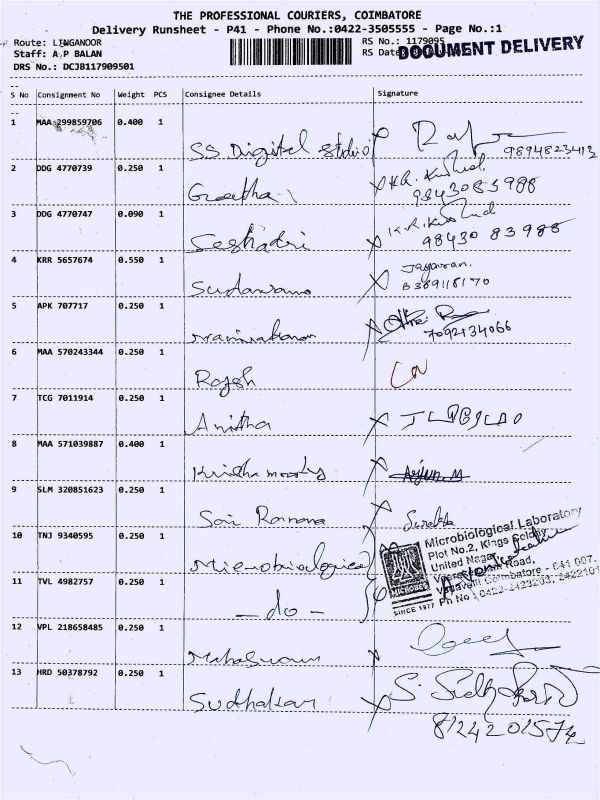 THE PROFESSIONAL COURIERS, COIMBATORE
Delivery Runsheet - P41 - Phone No.:0422-3505555 - Page No.:1
Route: LINGANOOR
Staff: A.P BALAN
DRS No.: DCJB117909501
RS No.: 1179095
RS Date:
DOCUMENT DELIVERY
S No Consignment No Weight PCS Consignee Details Signature
1 MAA 299859706 0.400 1 SS Digital Studio 9894823413
2 DDG 4770739 0.250 1 Geetha 9843083988
3 DDG 4770747 0.090 1 Seshadri K.R. 98430 83988
4 KRR 5657674 0.550 1 Sudarsanam Jayaraman. 6369118170
5 APK 707717 0.250 1 Manivakanan 7092134066
6 MAA 570243344 0.250 1 Rajesh
7 TCG 7011914 0.250 1 Anitha
8 MAA 571039887 0.400 1 Krishna moorthy Arjun. M
9 SLM 320851623 0.250 1 Sai Ramana Surekha
10 TNJ 9340595 0.250 1 Microbiological
11 TVL 4982757 0.250 1 - do -
Microbiological Laboratory
Plot No.2, Kings Colony
United Nagar
Road,
Vadavalli Coimbatore - 641 007.
Ph No : 0422-2423203, 2422101
MICROBES
SINCE 1977
12 VPL 218658485 0.250 1 Maheswari
13 HRD 50378792 0.250 1 Sudhakar S. Sudhakar
8124201574